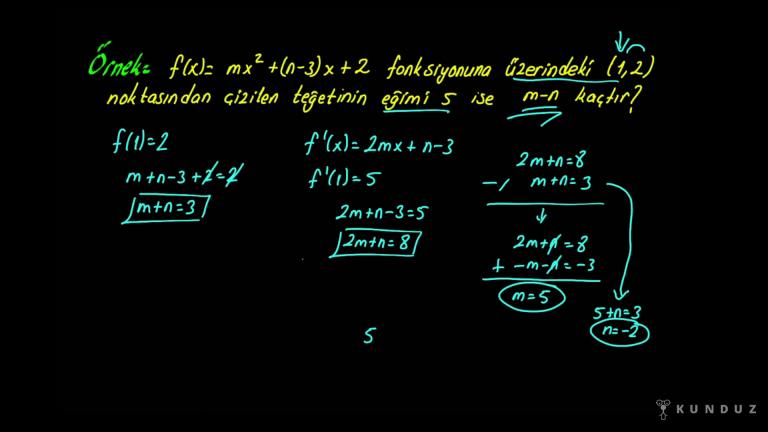 Örnek= f(x)= mx² + (n-3)x + 2 fonksiyonuna üzerindeki (1,2)
noktasından çizilen teğetinin eğimi 5 ise m-n kaçtır?
f(1)=2
m+n-3+2=2
m+n=3
f'(x)=2mx+n-3
f'(1)=5
2m+n-3=5
2m+n=8
2m+n=8
-/ m+n=3
2m+n=8
+ -m-n=-3
m=5
5+n=3
n=-2
5
KUNDUZ